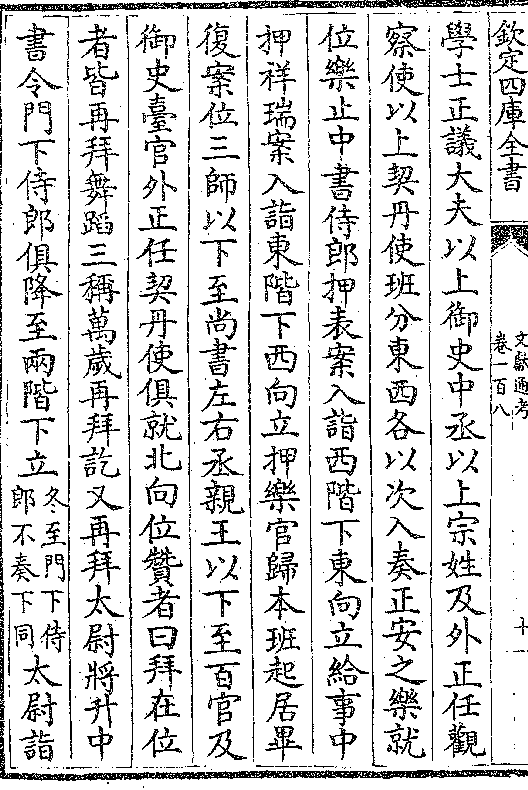 欽定四庫全書
文獻通考
卷一百八
十一
學士正議大夫以上御史中丞以上宗姓及外正任觀
察使以上契丹使班分東西各以次入奏正安之樂就
位樂止中書侍郎押表案入詣西階下東向立給事中
押祥瑞案入詣東階下西向立押樂官歸本班起居畢
復案位三師以下至尚書左右丞親王以下至百官及
御史臺官外正任契丹使俱就北向位贊者曰拜在位
者皆再拜舞蹈三稱萬歲再拜訖又再拜太尉將升中
書令門下侍郎俱降至兩階下立冬至門下侍郎不奏下同太尉詣